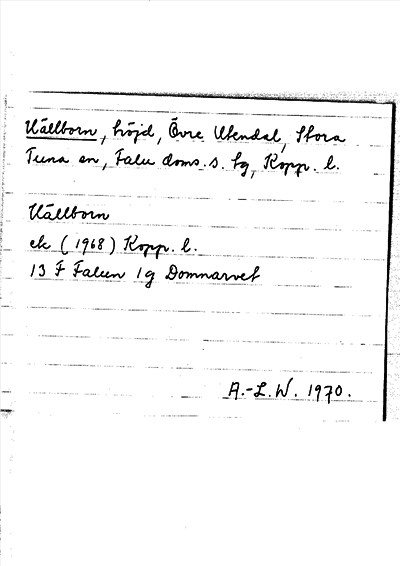 Källborn, höjd, Övre Utendal, Stora
Tuna sn, Falu doms. s. tg, Kopp. l.
Källborn
ek (1968) Kopp. l.
13 F Falun 1g Domnarvet
A.-L. W. 1970.